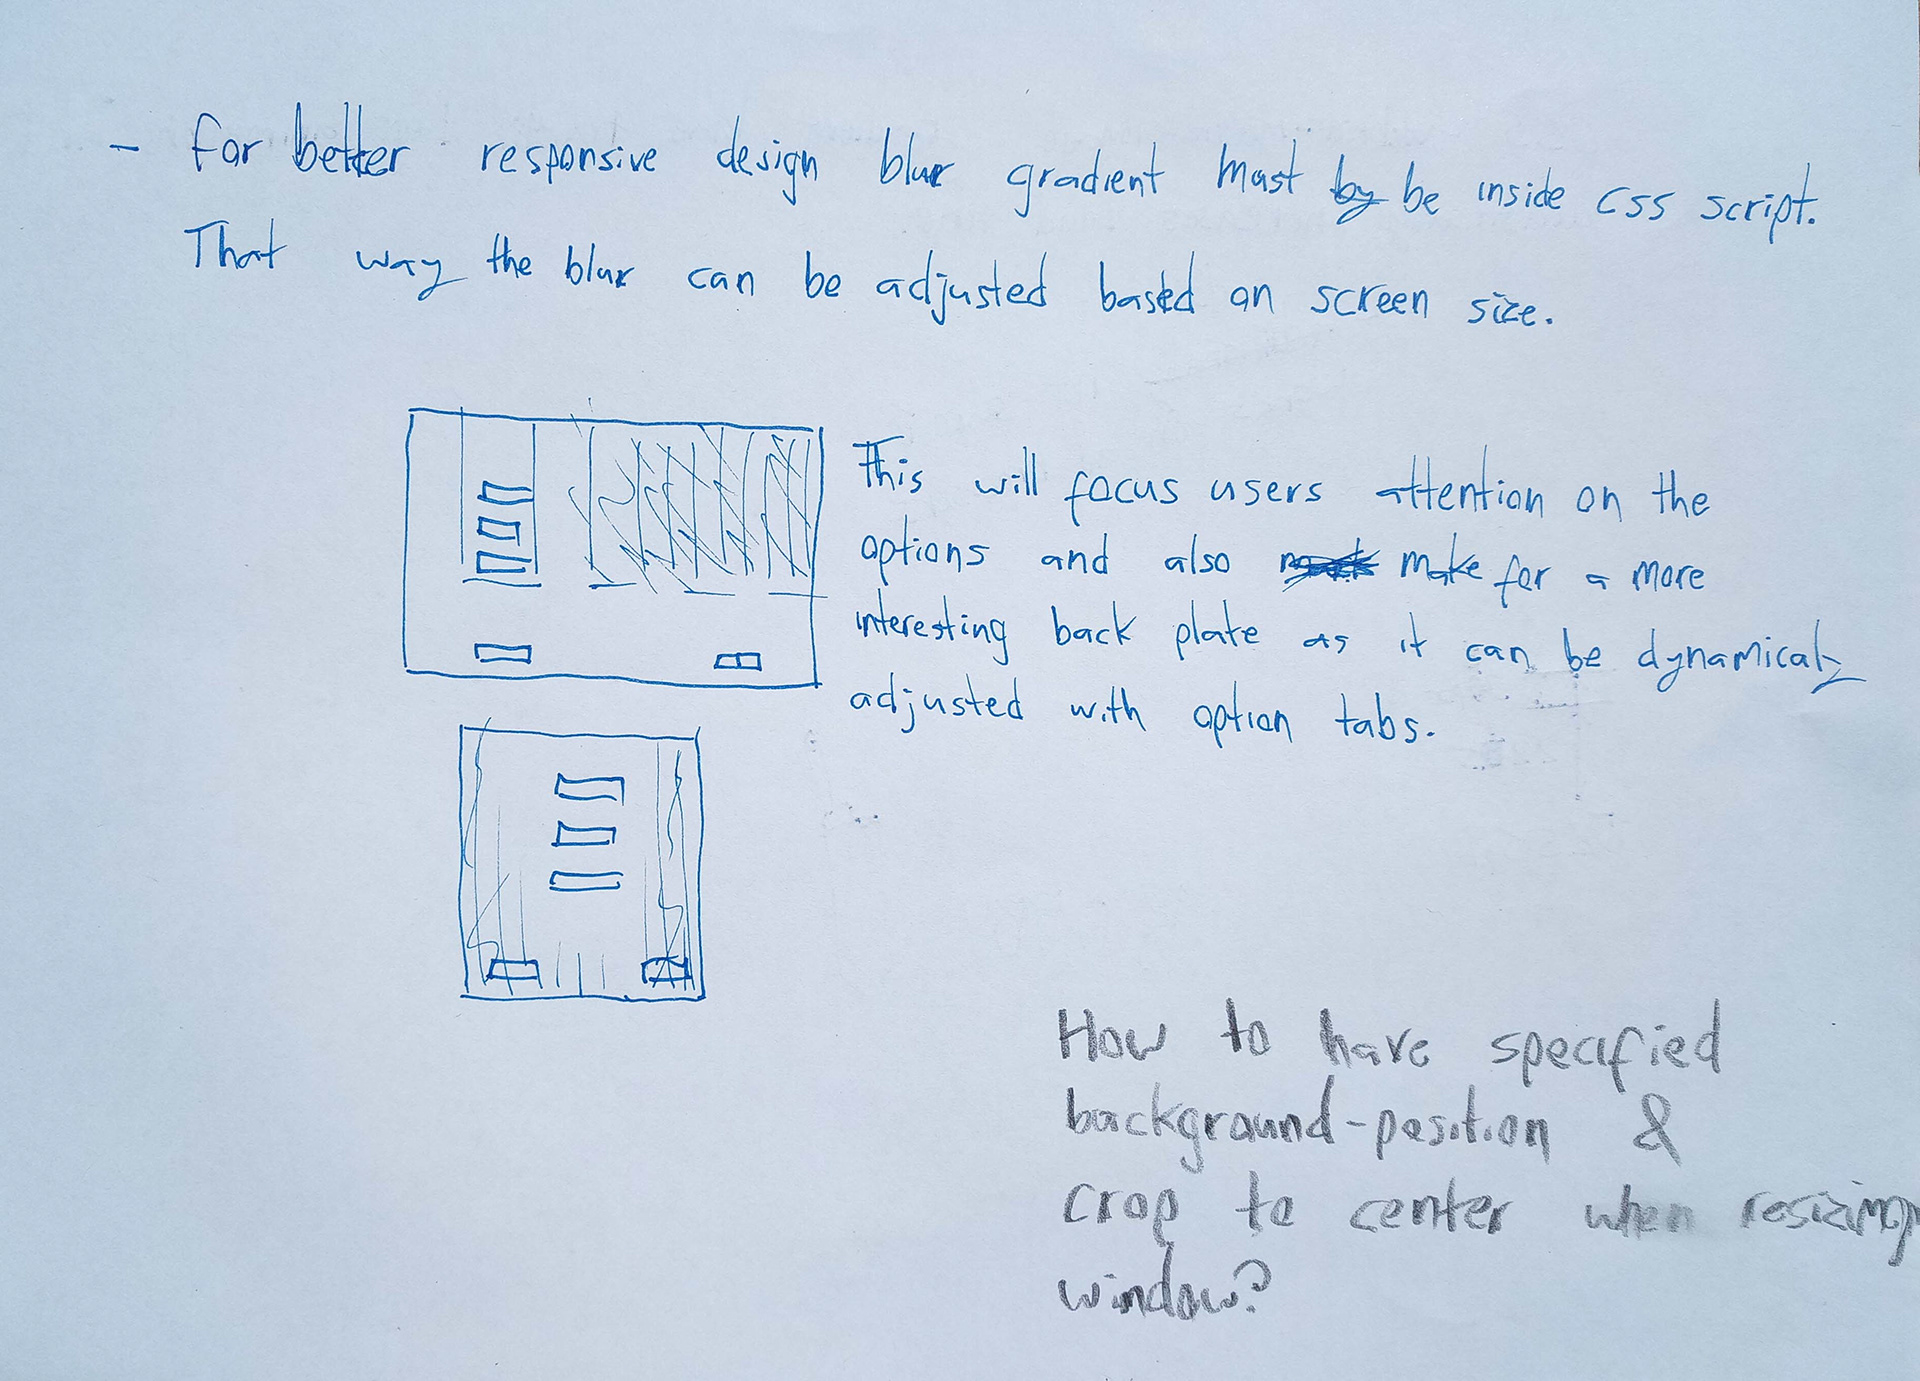 - For better responsive design blur gradient must by be inside css script.
That way the blur can be adjusted based on screen size.
This will focus users attention on the
options and also make for a more
interesting back plate as it can be dynamicaly
adjusted with option tabs.
How to have specified
background-position &
crop to center when resizing
window?